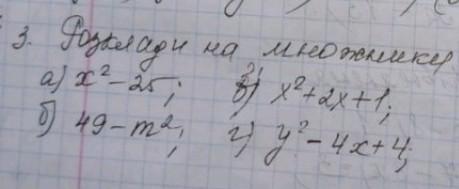 3. Розклади на множники
а) x² – 25; в) x² + 2x + 1;
б) 49 – m²; г) y² – 4x + 4;